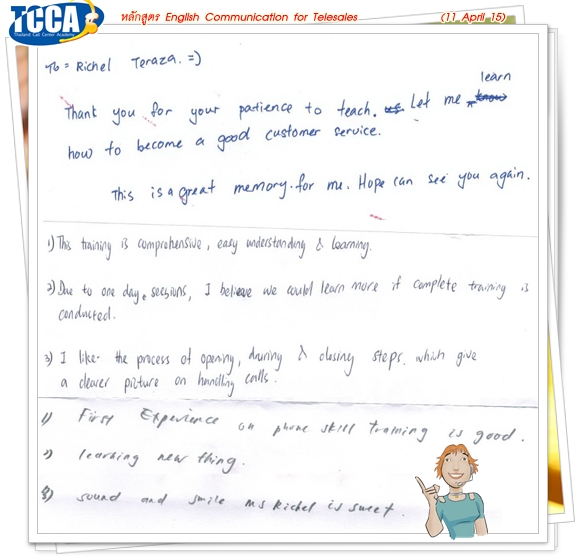 TCCA
Thailand Call Center Academy
หลักสูตร English Communication for Telesales (11 April 15)
To = Richel Teraza. =)
learn
Thank you for your patience to teach. us Let me know
how to become a good customer service.
This is a great memory for me. Hope can see you again.
1) This training is comprehensive, easy understanding & learning.
2) Due to one day sessions, I believe we could learn more if complete training is
conducted.
3) I like the process of opening, during & closing steps. which give
a clearer picture on handling calls.
1) First Experience on phone skill training is good.
2) learning new thing.
3) sound and smile ms Richel is sweet.